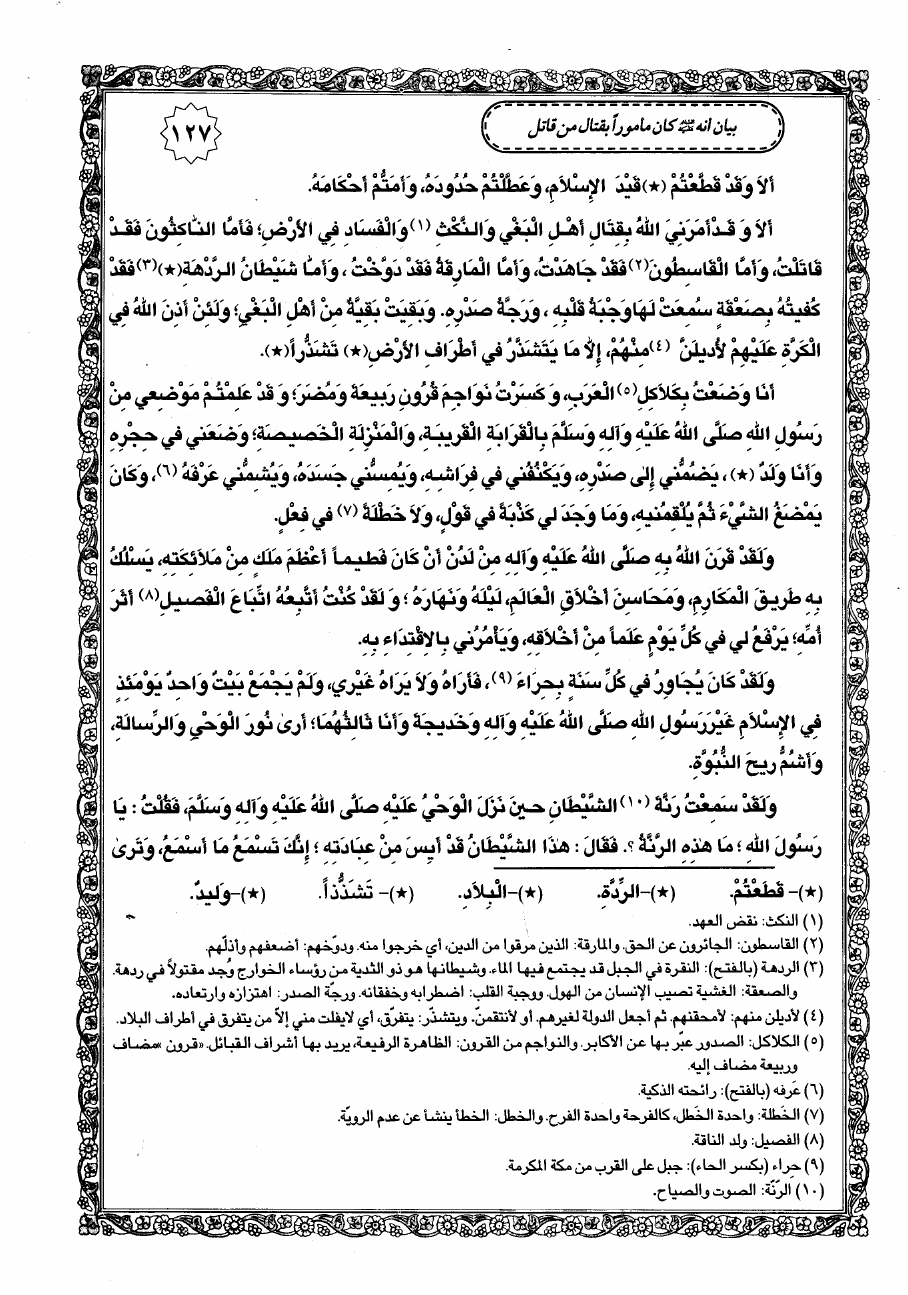 بيان انه ﷺ كان مأموراً بقتال من قاتل
١٢٧
أَلاَ وَقَدْ قَطَّعْتُمْ (★) قَيْدَ الإِسْلاَمِ، وَعَطَّلْتُمْ حُدُودَهُ، وَأَمَتُّمْ أَحْكَامَهُ.
أَلاَ وَ قَدْ أَمَرَنِيَ اللهُ بِقِتَالِ أَهْلِ الْبَغْيِ وَالنَّكْثِ (١) وَالْفَسَادِ فِي الأَرْضِ؛ فَأَمَّا النَّاكِثُونَ فَقَدْ
قَاتَلْتُ، وَأَمَّا الْقَاسِطُونَ (٢) فَقَدْ جَاهَدْتُ، وَأَمَّا الْمَارِقَةُ فَقَدْ دَوَّخْتُ، وَأَمَّا شَيْطَانُ الرَّدْهَةِ (★) (٣) فَقَدْ
كُفِيتُهُ بِصَعْقَةٍ سُمِعَتْ لَهَا وَجْبَةُ قَلْبِهِ، وَرَجَّةُ صَدْرِهِ. وَبَقِيَتْ بَقِيَّةٌ مِنْ أَهْلِ الْبَغْيِ؛ وَلَئِنْ أَذِنَ اللهُ فِي
الْكَرَّةِ عَلَيْهِمْ لأُدِيلَنَّ (٤) مِنْهُمْ، إِلاَّ مَا يَتَشَذَّرُ فِي أَطْرَافِ الأَرْضِ (★) تَشَذُّراً (★).
أَنَا وَضَعْتُ بِكَلاَكِلِ (٥) الْعَرَبِ، وَ كَسَرْتُ نَوَاجِمَ قُرُونِ رَبِيعَةَ وَمُضَرَ؛ وَ قَدْ عَلِمْتُمْ مَوْضِعِي مِنْ
رَسُولِ اللهِ صَلَّى اللهُ عَلَيْهِ وَآلِهِ وَسَلَّمَ بِالْقَرَابَةِ الْقَرِيبَةِ، وَالْمَنْزِلَةِ الْخَصِيصَةِ؛ وَضَعَنِي فِي حِجْرِهِ
وَأَنَا وَلَدٌ (★)، يَضُمُّنِي إِلَى صَدْرِهِ، وَيَكْنُفُنِي فِي فِرَاشِهِ، وَيُمِسُّنِي جَسَدَهُ، وَيُشِمُّنِي عَرْفَهُ (٦)، وَكَانَ
يَمْضَغُ الشَّيْءَ ثُمَّ يُلْقِمُنِيهِ، وَمَا وَجَدَ لِي كَذْبَةً فِي قَوْلٍ، وَلاَ خَطْلَةً (٧) فِي فِعْلٍ.
وَلَقَدْ قَرَنَ اللهُ بِهِ صَلَّى اللهُ عَلَيْهِ وَآلِهِ مِنْ لَدُنْ أَنْ كَانَ فَطِيماً أَعْظَمَ مَلَكٍ مِنْ مَلاَئِكَتِهِ، يَسْلُكُ
بِهِ طَرِيقَ الْمَكَارِمِ، وَمَحَاسِنَ أَخْلاَقِ الْعَالَمِ، لَيْلَهُ وَنَهَارَهُ؛ وَ لَقَدْ كُنْتُ أَتَّبِعُهُ اتِّبَاعَ الْفَصِيلِ (٨) أَثَرَ
أُمِّهِ؛ يَرْفَعُ لِي فِي كُلِّ يَوْمٍ عَلَماً مِنْ أَخْلاَقِهِ، وَيَأْمُرُنِي بِالاِقْتِدَاءِ بِهِ.
وَلَقَدْ كَانَ يُجَاوِرُ فِي كُلِّ سَنَةٍ بِحِرَاءَ (٩)، فَأَرَاهُ وَلاَ يَرَاهُ غَيْرِي، وَلَمْ يَجْمَعْ بَيْتٌ وَاحِدٌ يَوْمَئِذٍ
فِي الإِسْلاَمِ غَيْرَ رَسُولِ اللهِ صَلَّى اللهُ عَلَيْهِ وَآلِهِ وَخَدِيجَةَ وَأَنَا ثَالِثُهُمَا؛ أَرَى نُورَ الْوَحْيِ وَالرِّسَالَةِ،
وَأَشُمُّ رِيحَ النُّبُوَّةِ.
وَلَقَدْ سَمِعْتُ رَنَّةَ (١٠) الشَّيْطَانِ حِينَ نَزَلَ الْوَحْيُ عَلَيْهِ صَلَّى اللهُ عَلَيْهِ وَآلِهِ وَسَلَّمَ، فَقُلْتُ: يَا
رَسُولَ اللهِ؛ مَا هٰذِهِ الرَّنَّةُ؟. فَقَالَ: هٰذَا الشَّيْطَانُ قَدْ أَيِسَ مِنْ عِبَادَتِهِ؛ إِنَّكَ تَسْمَعُ مَا أَسْمَعُ، وَتَرَىٰ
(★)- قَطَعْتُمْ. (★)-الرِّدَّةِ. (★)-الْبِلاَدِ. (★)- تَشَذُّذاً. (★)-وَلِيدٌ.
(١) النكث: نقض العهد.
(٢) القاسطون: الجائرون عن الحق. والمارقة: الذين مرقوا من الدين، أي خرجوا منه. ودوّخهم: أضعفهم وأذلّهم.
(٣) الردهة (بالفتح): النقرة في الجبل قد يجتمع فيها الماء. وشيطانها هو ذو الثدية من رؤساء الخوارج وُجد مقتولاً في ردهة.
والصعقة: الغشية تصيب الإنسان من الهول. ووجبة القلب: اضطرابه وخفقانه. ورجّة الصدر: اهتزازه وارتعاده.
(٤) لأديلن منهم: لأمحقنهم. ثم أجعل الدولة لغيرهم. أو لأنتقمنّ. ويتشذّر: يتفرّق، أي لايفلت مني إلاّ من يتفرق في أطراف البلاد.
(٥) الكلاكل: الصدور عبّر بها عن الأكابر. والنواجم من القرون: الظاهرة الرفيعة، يريد بها أشراف القبائل. «قرون» مضاف
وربيعة مضاف إليه.
(٦) عَرفه (بالفتح): رائحته الذكية.
(٧) الخَطلة: واحدة الخَطل، كالفرحة واحدة الفرح. والخطل: الخطأ ينشأ عن عدم الرويّة.
(٨) الفصيل: ولد الناقة.
(٩) حِراء (بكسر الحاء): جبل على القرب من مكة المكرمة.
(١٠) الرنّة: الصوت والصياح.